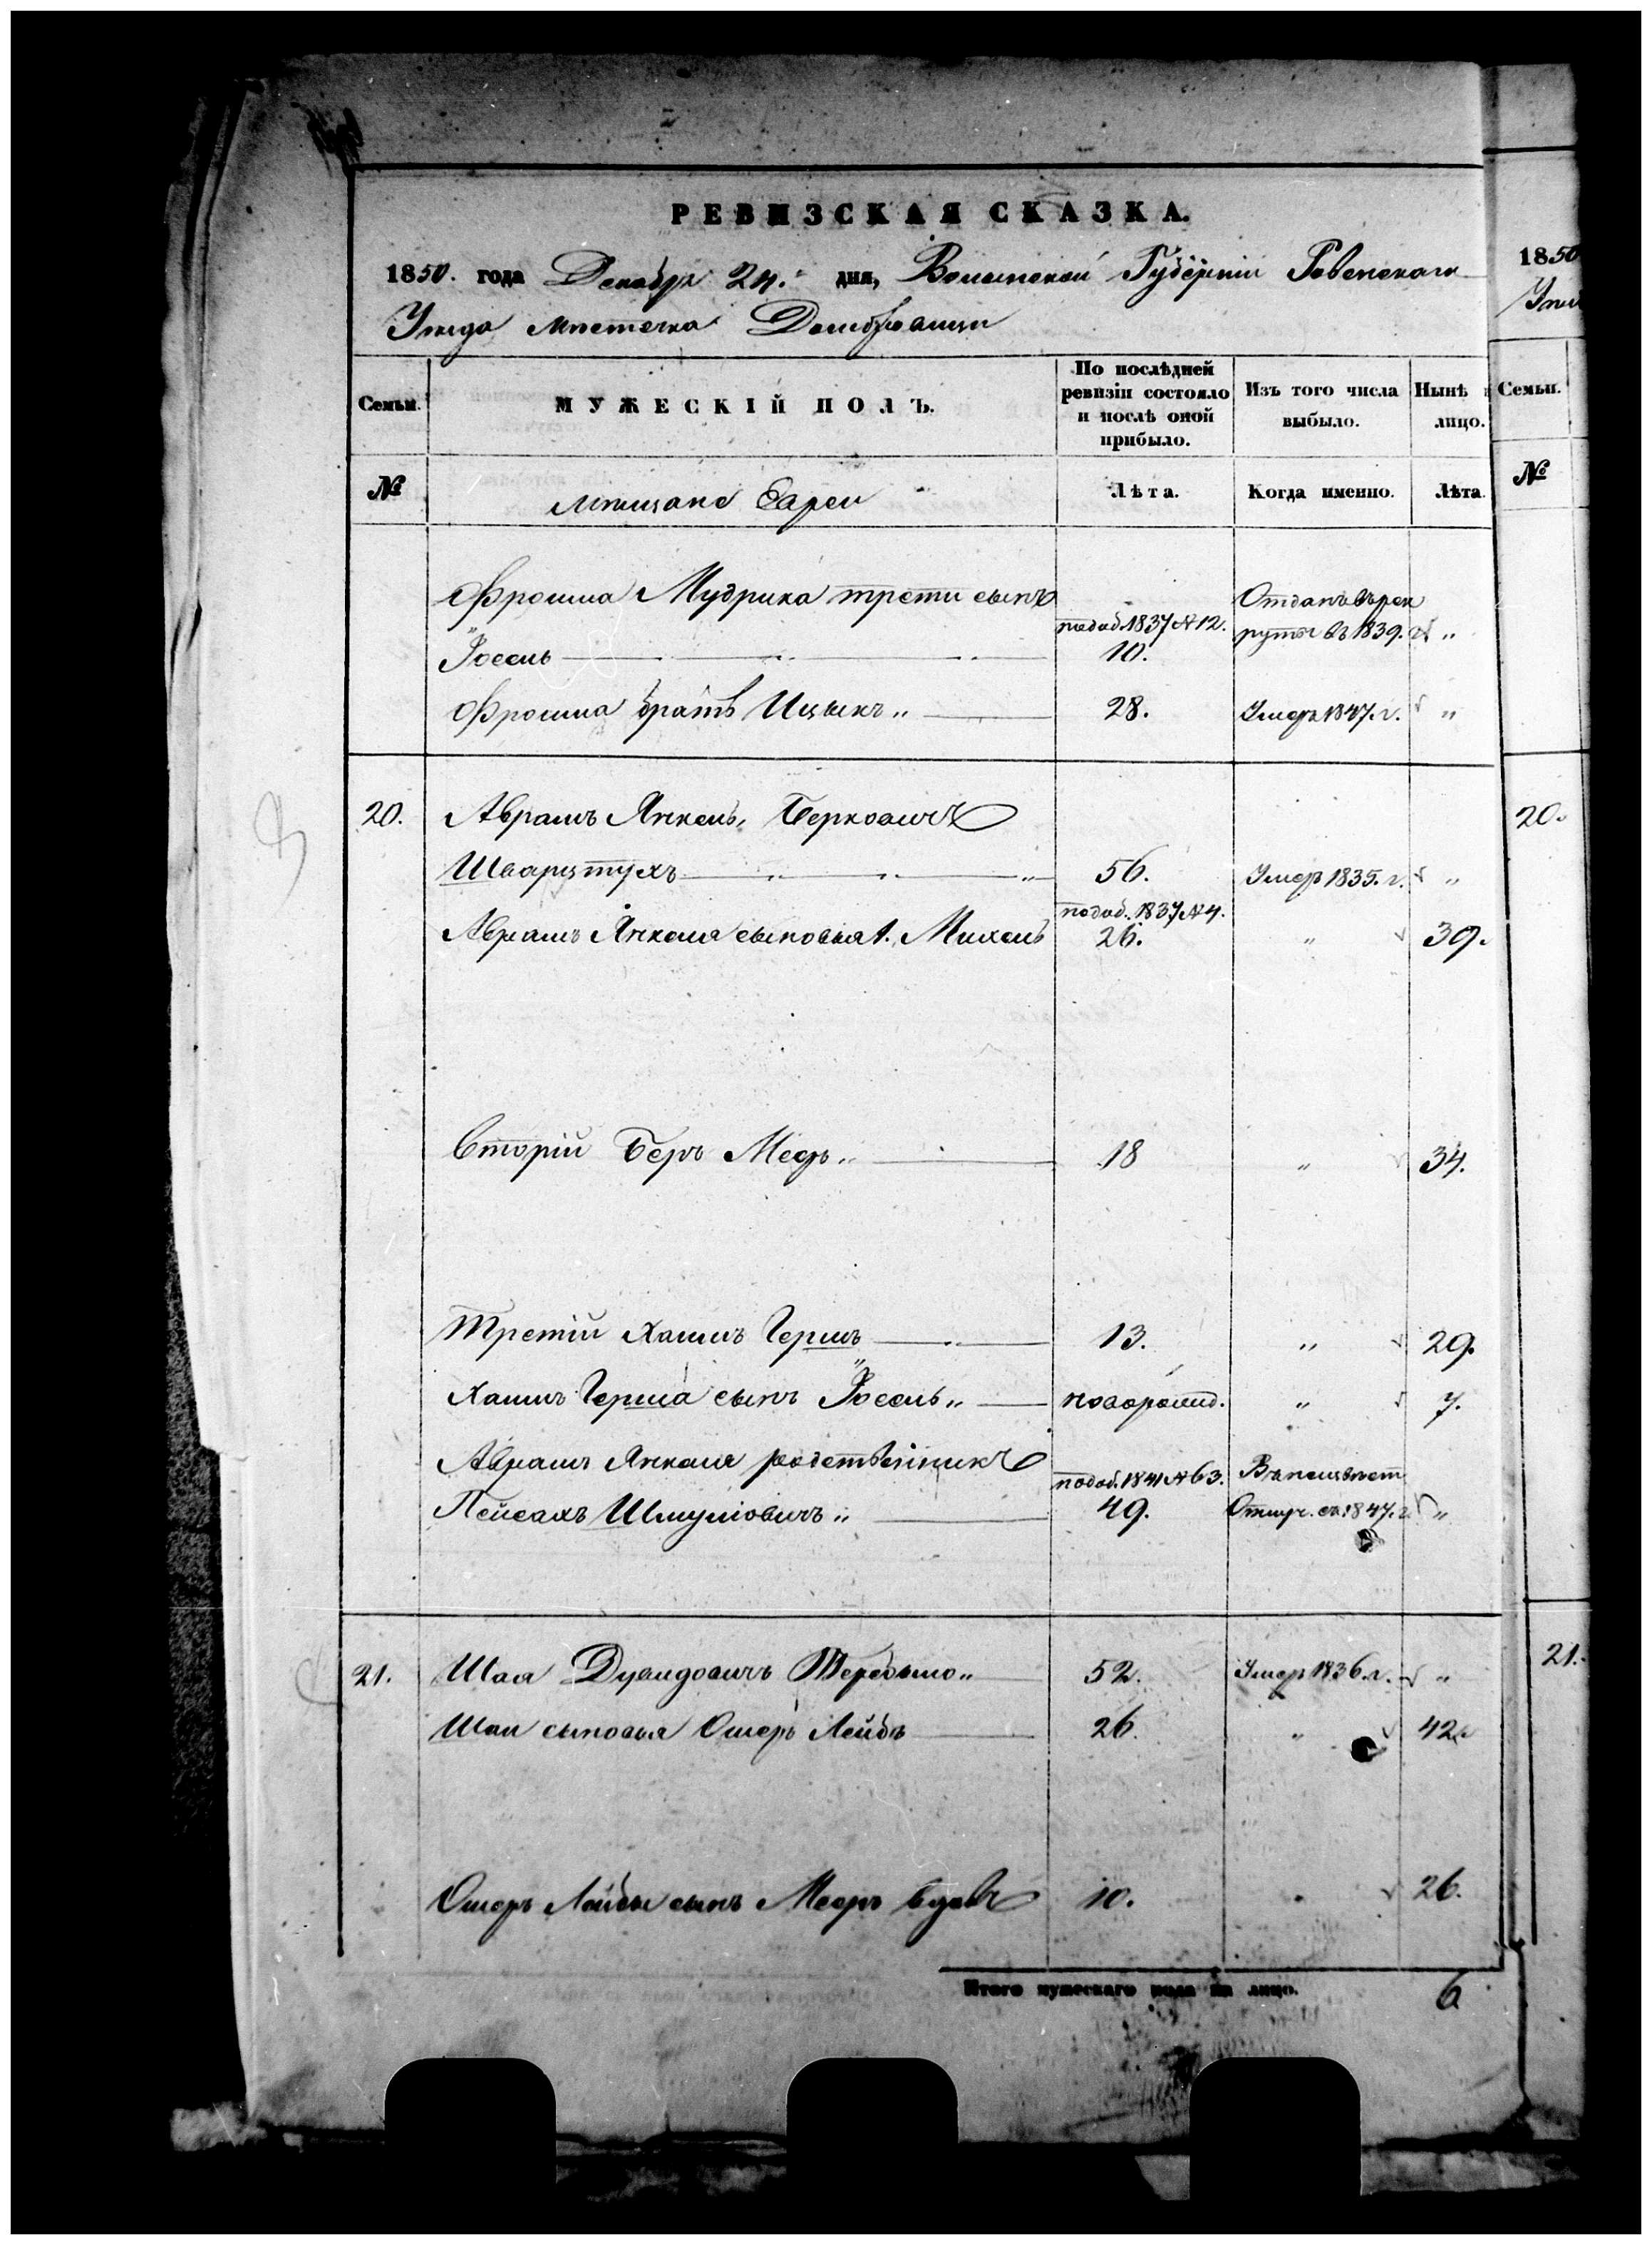 РЕВИЗСКАЯ СКАЗКА.
1850. года Декабря 24. дня, Волынской Губерніи Ровенскаго
Уѣзда мѣстечка Домбровицы
Семьи. МУЖЕСКІЙ ПОЛЪ. По послѣдней ревизіи состояло и послѣ оной прибыло. Изъ того числа выбыло. Нынѣ лицо.
№ Мѣщане Евреи Лѣта. Когда именно. Лѣта.
Фроима Мудрика трети сынъ Отданъ въ рек
подоб. 1837 №12. руты въ 1839. г. "
Іосель 10.
Фроима братъ Ицыкъ " 28. Умеръ 1847. г. "
20. Аврамъ Янкель Берковичъ
Шварцтухъ " 56. Умеръ 1835. г. "
подоб. 1837 №4.
Аврамъ Янкеля сыновья 1. Михель 26. " 39.
Вторій Беръ Мееръ " 18 " 34.
Третій Хаимъ Гершъ 13. " 29.
Хаимъ Герша сынъ Іосель " новорожд. " 7.
Аврамъ Янкеля родственникъ
подоб. 1841 №63.
Пейсахъ Шмуліовичъ " 49. Отлуч. съ 1847. г. "
21. Шая Дувидовичъ " 52. Умеръ 1836. г. "
Шаи сыновья Ошеръ Лейбъ 26. " 42.
Ошеръ Лейбы сынъ Мееръ 10. " 26.
Итого мужескаго пола на лицо. 6
1850
Семьи.
№
20.
21.